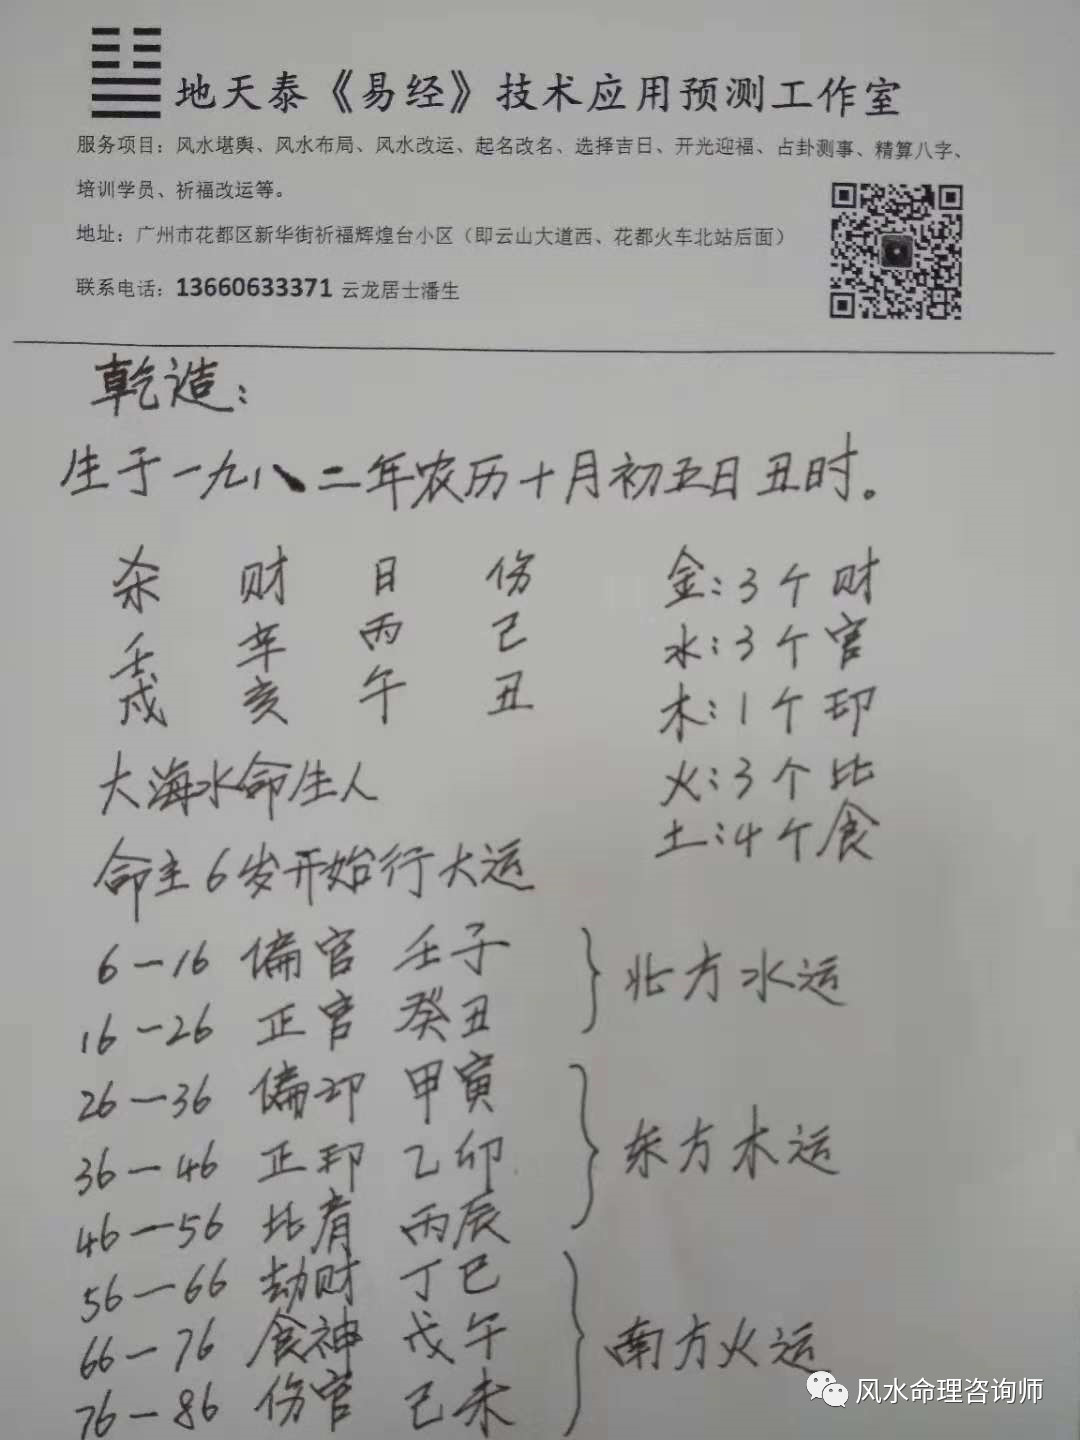 地天泰《易经》技术应用预测工作室
服务项目：风水堪舆、风水布局、风水改运、起名改名、选择吉日、开光迎福、占卦测事、精算八字、
培训学员、祈福改运等。
地址：广州市花都区新华街祈福辉煌台小区（即云山大道西、花都火车北站后面）
联系电话：13660633371 云龙居士潘生
乾造：
生于一九八二年农历十月初五日丑时。
杀 财 日 伤 金：3个财
壬 辛 丙 己 水：3个官
戌 亥 午 丑 木：1个印
大海水命生人 火：3个比
土：4个食
命主6岁开始行大运
6—16 偏官 壬子
16—26 正官 癸丑
北方水运
26—36 偏印 甲寅
36—46 正印 乙卯
46—56 比肩 丙辰
东方木运
56—66 劫财 丁巳
66—76 食神 戊午
76—86 伤官 己未
南方火运
风水命理咨询师